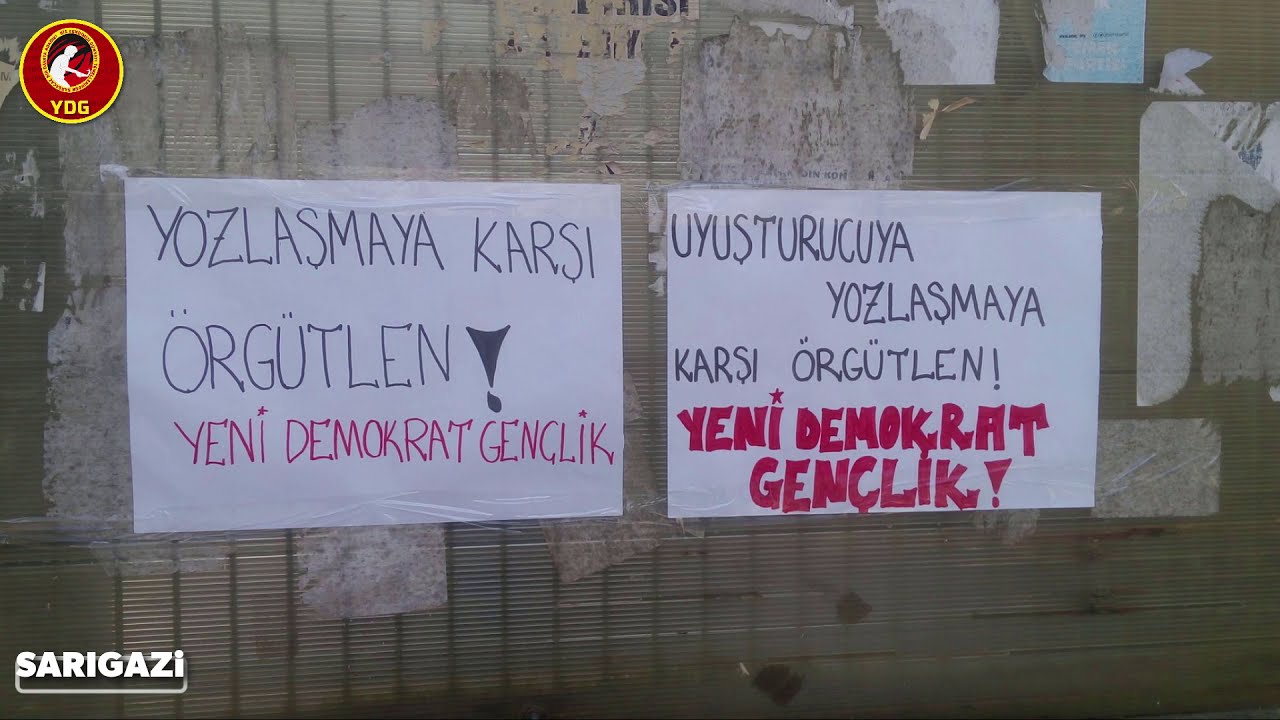 YDG
YOZLAŞMAYA KARŞI
ÖRGÜTLEN!
YENİ DEMOKRAT GENÇLİK
UYUŞTURUCUYA
YOZLAŞMAYA
KARŞI ÖRGÜTLEN!
YENİ DEMOKRAT
GENÇLİK!
SARIGAZi